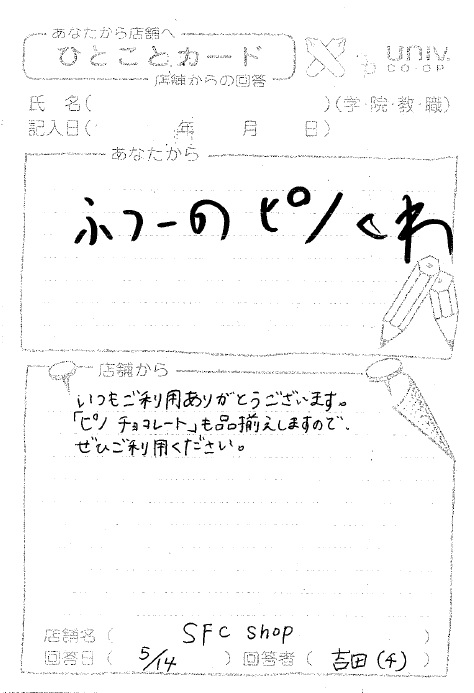 あなたから店舗へ
ひとことカード
店舗からの回答
univ.
CO-OP
氏 名( )(学・院・教・職)
記入日( 年 月 日)
あなたから
ふつーの ピノくれ
店舗から
いつもご利用ありがとうございます。
「ピノ チョコレート」も品揃えしますので、
ぜひご利用ください。
店舗名( SFC shop )
回答日( 5/14 )回答者( 吉田(千) )